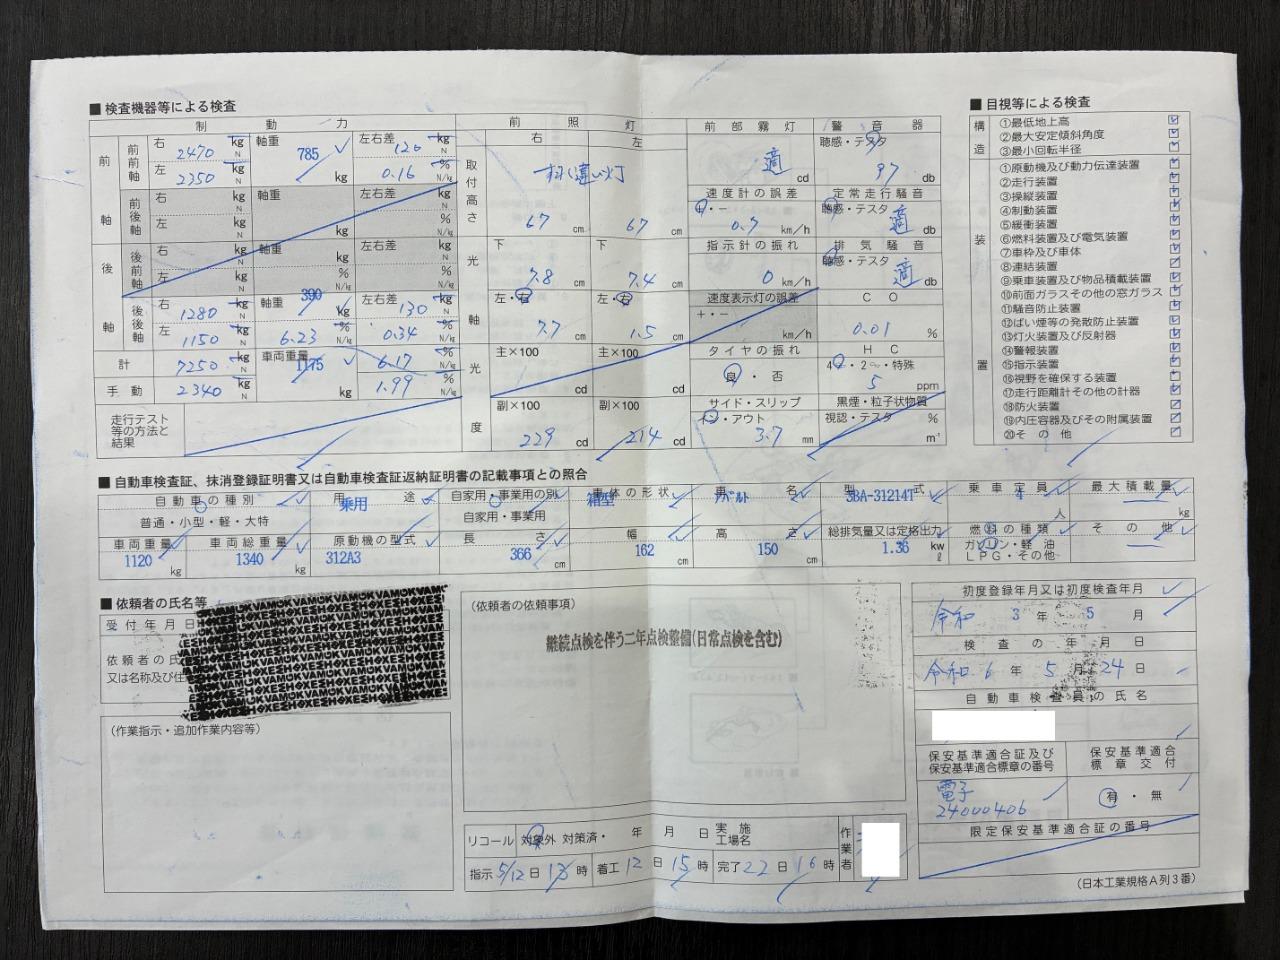 ■ 検査機器等による検査
制動力
前軸
前前軸 右 2470 kg N 軸重 785 kg 左右差 120 kg N
左 2350 kg N 0.16 % N/kg
前後軸 右 kg N 軸重 kg 左右差 kg N
左 kg N % N/kg
後軸
後前軸 右 kg N 軸重 左右差 kg N
左 kg N % N/kg
後後軸 右 1280 kg N 軸重 390 kg 左右差 130 kg N
左 1150 kg N 6.23 % N/kg 0.34 % N/kg
計 7250 kg N 車両重量 1175 kg 6.17 % N/kg
手動 2340 kg N 1.99 % N/kg
走行テスト等の方法と結果
前照灯
右 左
取付高さ すれ違い灯
67 cm 67 cm
光軸 下 7.8 cm 下 7.4 cm
左・右 7.7 cm 左・右 1.5 cm
光度 主×100 cd 主×100 cd
副×100 229 cd 副×100 214 cd
前部霧灯 適 cd
速度計の誤差 +・- 0.7 km/h
指示計の振れ 0 km/h
速度表示灯の誤差 +・- km/h
タイヤの振れ 良・否
サイド・スリップ イン・アウト 3.7 mm
警音器 聴感・テスタ 97 db
定常走行騒音 聴感・テスタ 適 db
排気騒音 聴感・テスタ 適 db
CO 0.01 %
HC 4・2・特殊 5 ppm
黒煙・粒子状物質 視認・テスタ % m⁻¹
■ 目視等による検査
構造
①最低地上高
②最大安定傾斜角度
③最小回転半径
装置
①原動機及び動力伝達装置
②走行装置
③操縦装置
④制動装置
⑤緩衝装置
⑥燃料装置及び電気装置
⑦車枠及び車体
⑧連結装置
⑨乗車装置及び物品積載装置
⑩前面ガラスその他の窓ガラス
⑪騒音防止装置
⑫ばい煙等の発散防止装置
⑬灯火装置及び反射器
⑭警報装置
⑮指示装置
⑯視野を確保する装置
⑰走行距離計その他の計器
⑱防火装置
⑲内圧容器及びその附属装置
⑳その他
■ 自動車検査証、抹消登録証明書又は自動車検査証返納証明書の記載事項との照合
自動車の種別 普通・小型・軽・大特
用途 乗用
自家用・事業用の別 自家用・事業用
車体の形状 箱型
車名 アバルト
型式 3BA-31214T
乗車定員 4 人
最大積載量 kg
車両重量 1120 kg
車両総重量 1340 kg
原動機の型式 312A3
長さ 366 cm
幅 162 cm
高さ 150 cm
総排気量又は定格出力 1.36 kw ℓ
燃料の種類 ガソリン・軽油 LPG・その他
その他
■ 依頼者の氏名等
受付年月日
依頼者の氏
又は名称及び住
(作業指示・追加作業内容等)
(依頼者の依頼事項)
継続点検を伴う二年点検整備(日常点検を含む)
リコール 対象外 対策済・ 年 月 日 実施工場名
指示 5/12 日 13 時 着工 12 日 15 時 完了 22 日 16 時
作業者
初度登録年月又は初度検査年月
令和 3 年 5 月
検査の年月日
令和 6 年 5 月 24 日
自動車検査員の氏名
保安基準適合証及び保安基準適合標章の番号
電子
24000406
保安基準適合標章交付
有・無
限定保安基準適合証の番号
(日本工業規格A列3番)